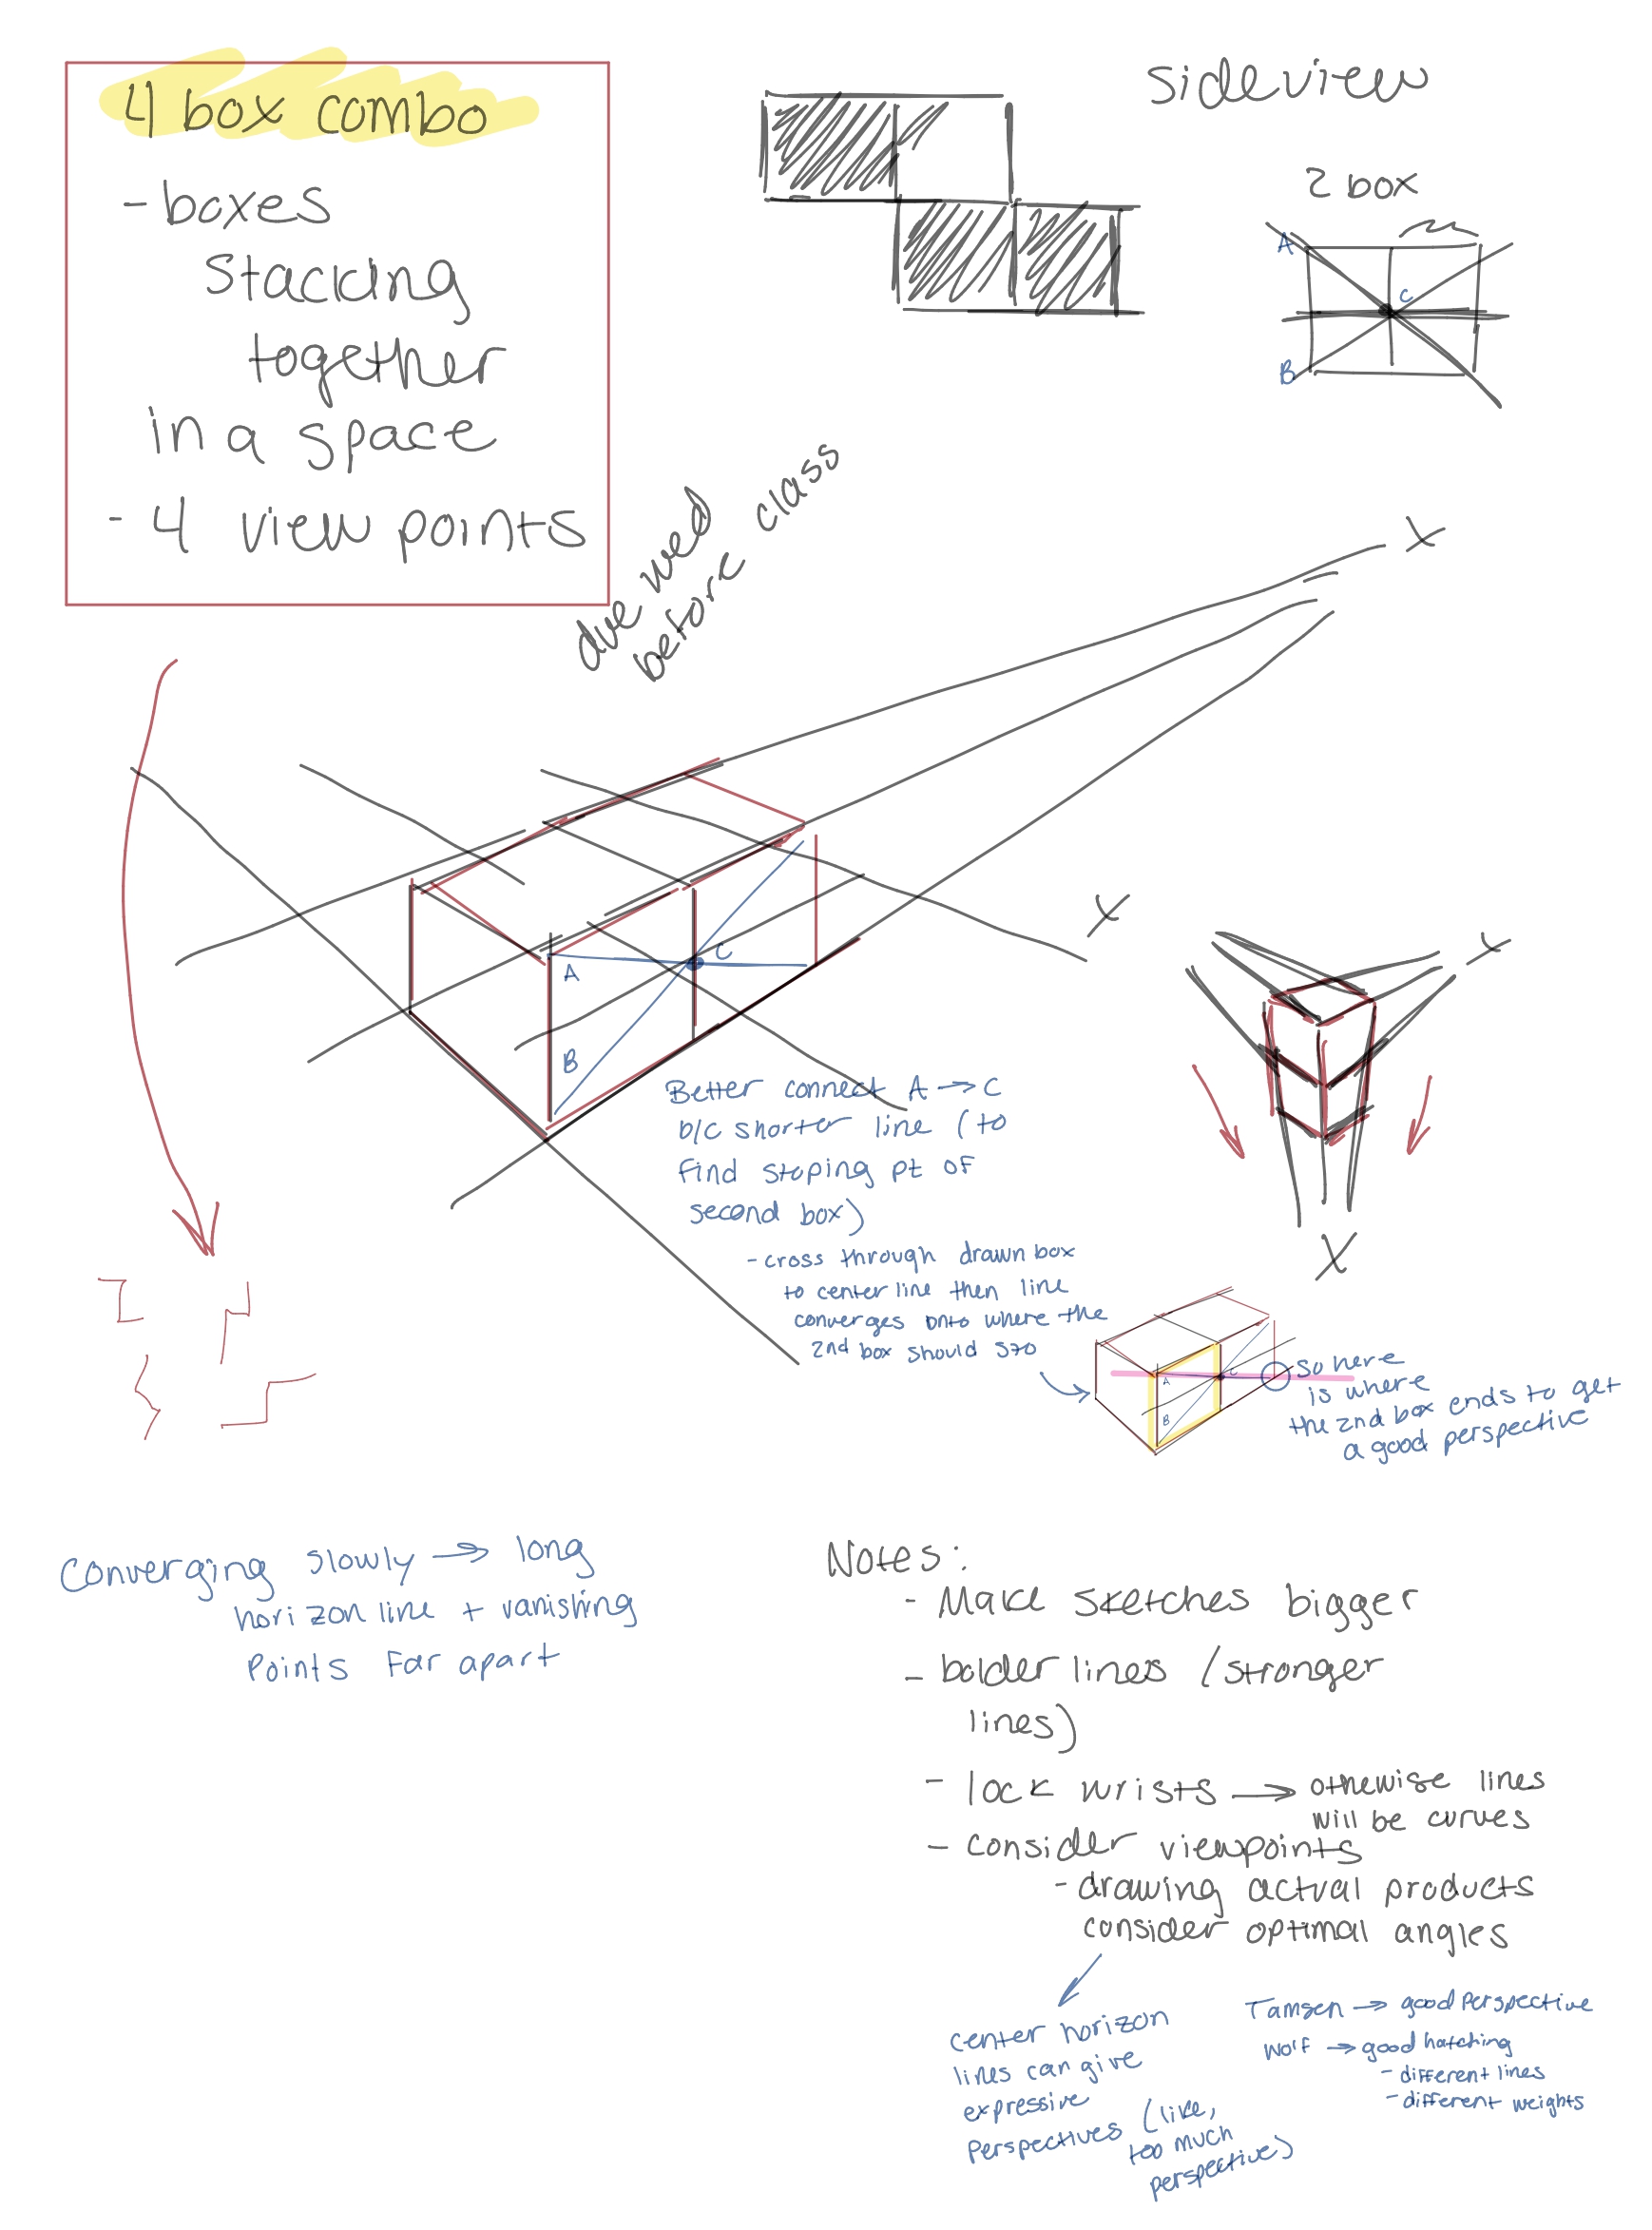 4 box combo
- boxes
stacking
together
in a space
- 4 view points
sideview
2 box
A
C
B
due wed
before class
X
X
A
C
B
X
X
Better connect A → C
b/c shorter line (to
find stoping pt of
second box)
- cross through drawn box
to center line then line
converges onto where the
2nd box should
A
C
B
so here
is where
the 2nd box ends to get
a good perspective
Converging slowly → long
horizon line + vanishing
points far apart
Notes:
- Make sketches bigger
- bolder lines (stronger
lines)
- lock wrists → othewise lines
will be curves
- consider viewpoints
- drawing actual products
consider optimal angles
center horizon
lines can give
expressive
perspectives (like,
too much
perspective)
Tamsen → good perspective
Wolf → good hatching
- different lines
- different weights